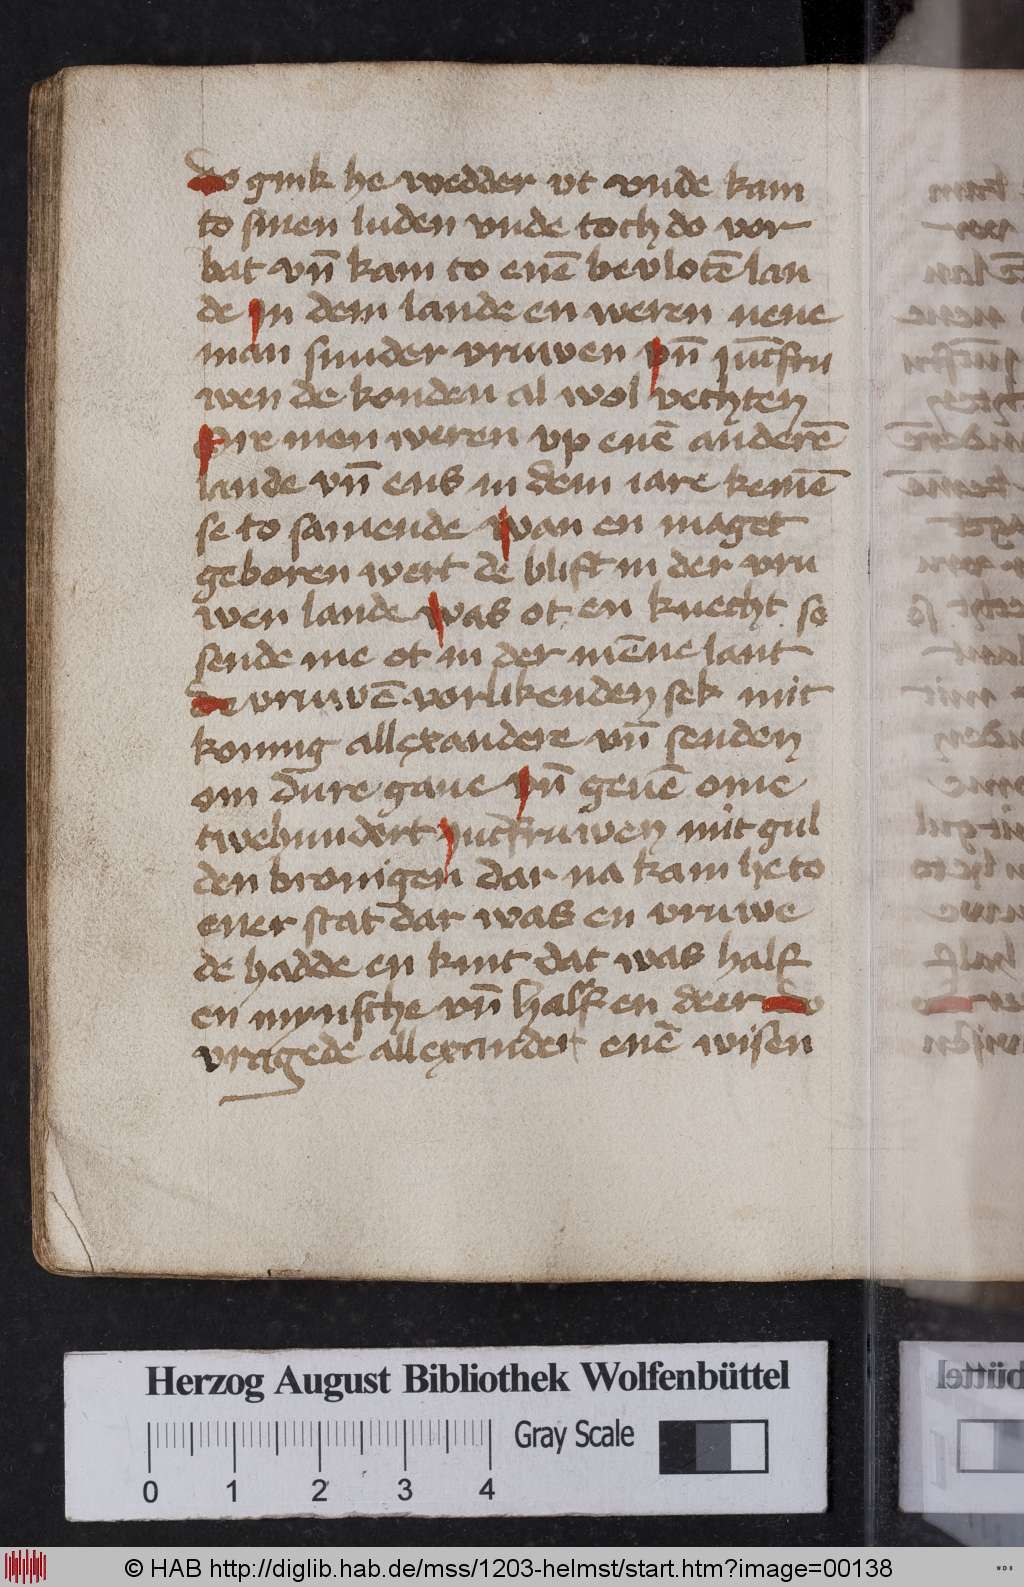 do gink he wedder vt vnde kam
to sinen luden vnde toch do vor
bat vn̄ kam to enē bevlotē lan
de In dem lande en weren nene
man sunder vruwen vn̄ iuc̄fru
wen de konden al wol vechten
Ere men weren vp enē anderē
lande vn̄ ens in dem iare kemē
se to samende wan en maget
geboren wert de blift in der vru
wen lande was ot en knecht se
sende me ot in der mēne lant
de vruwē vorlikenden sek mit
koning allexandere vn̄ senden
om dure gaue vn̄ geuē ome
twehundert Iuc̄fruwen mit gul
den bronigen dar na kam he to
ener stat dar was en vruwe
de hadde en kint dat was half
en mynsche vn̄ half en deer do
vragede allexander enē wisen
Herzog August Bibliothek Wolfenbüttel
Gray Scale
0 1 2 3 4
© HAB http://diglib.hab.de/mss/1203-helmst/start.htm?image=00138